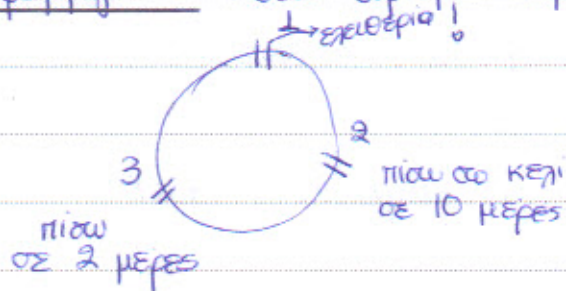 1
ελευθερία!
2
πίσω στο κελί
σε 10 μέρες
3
πίσω
σε 2 μέρες